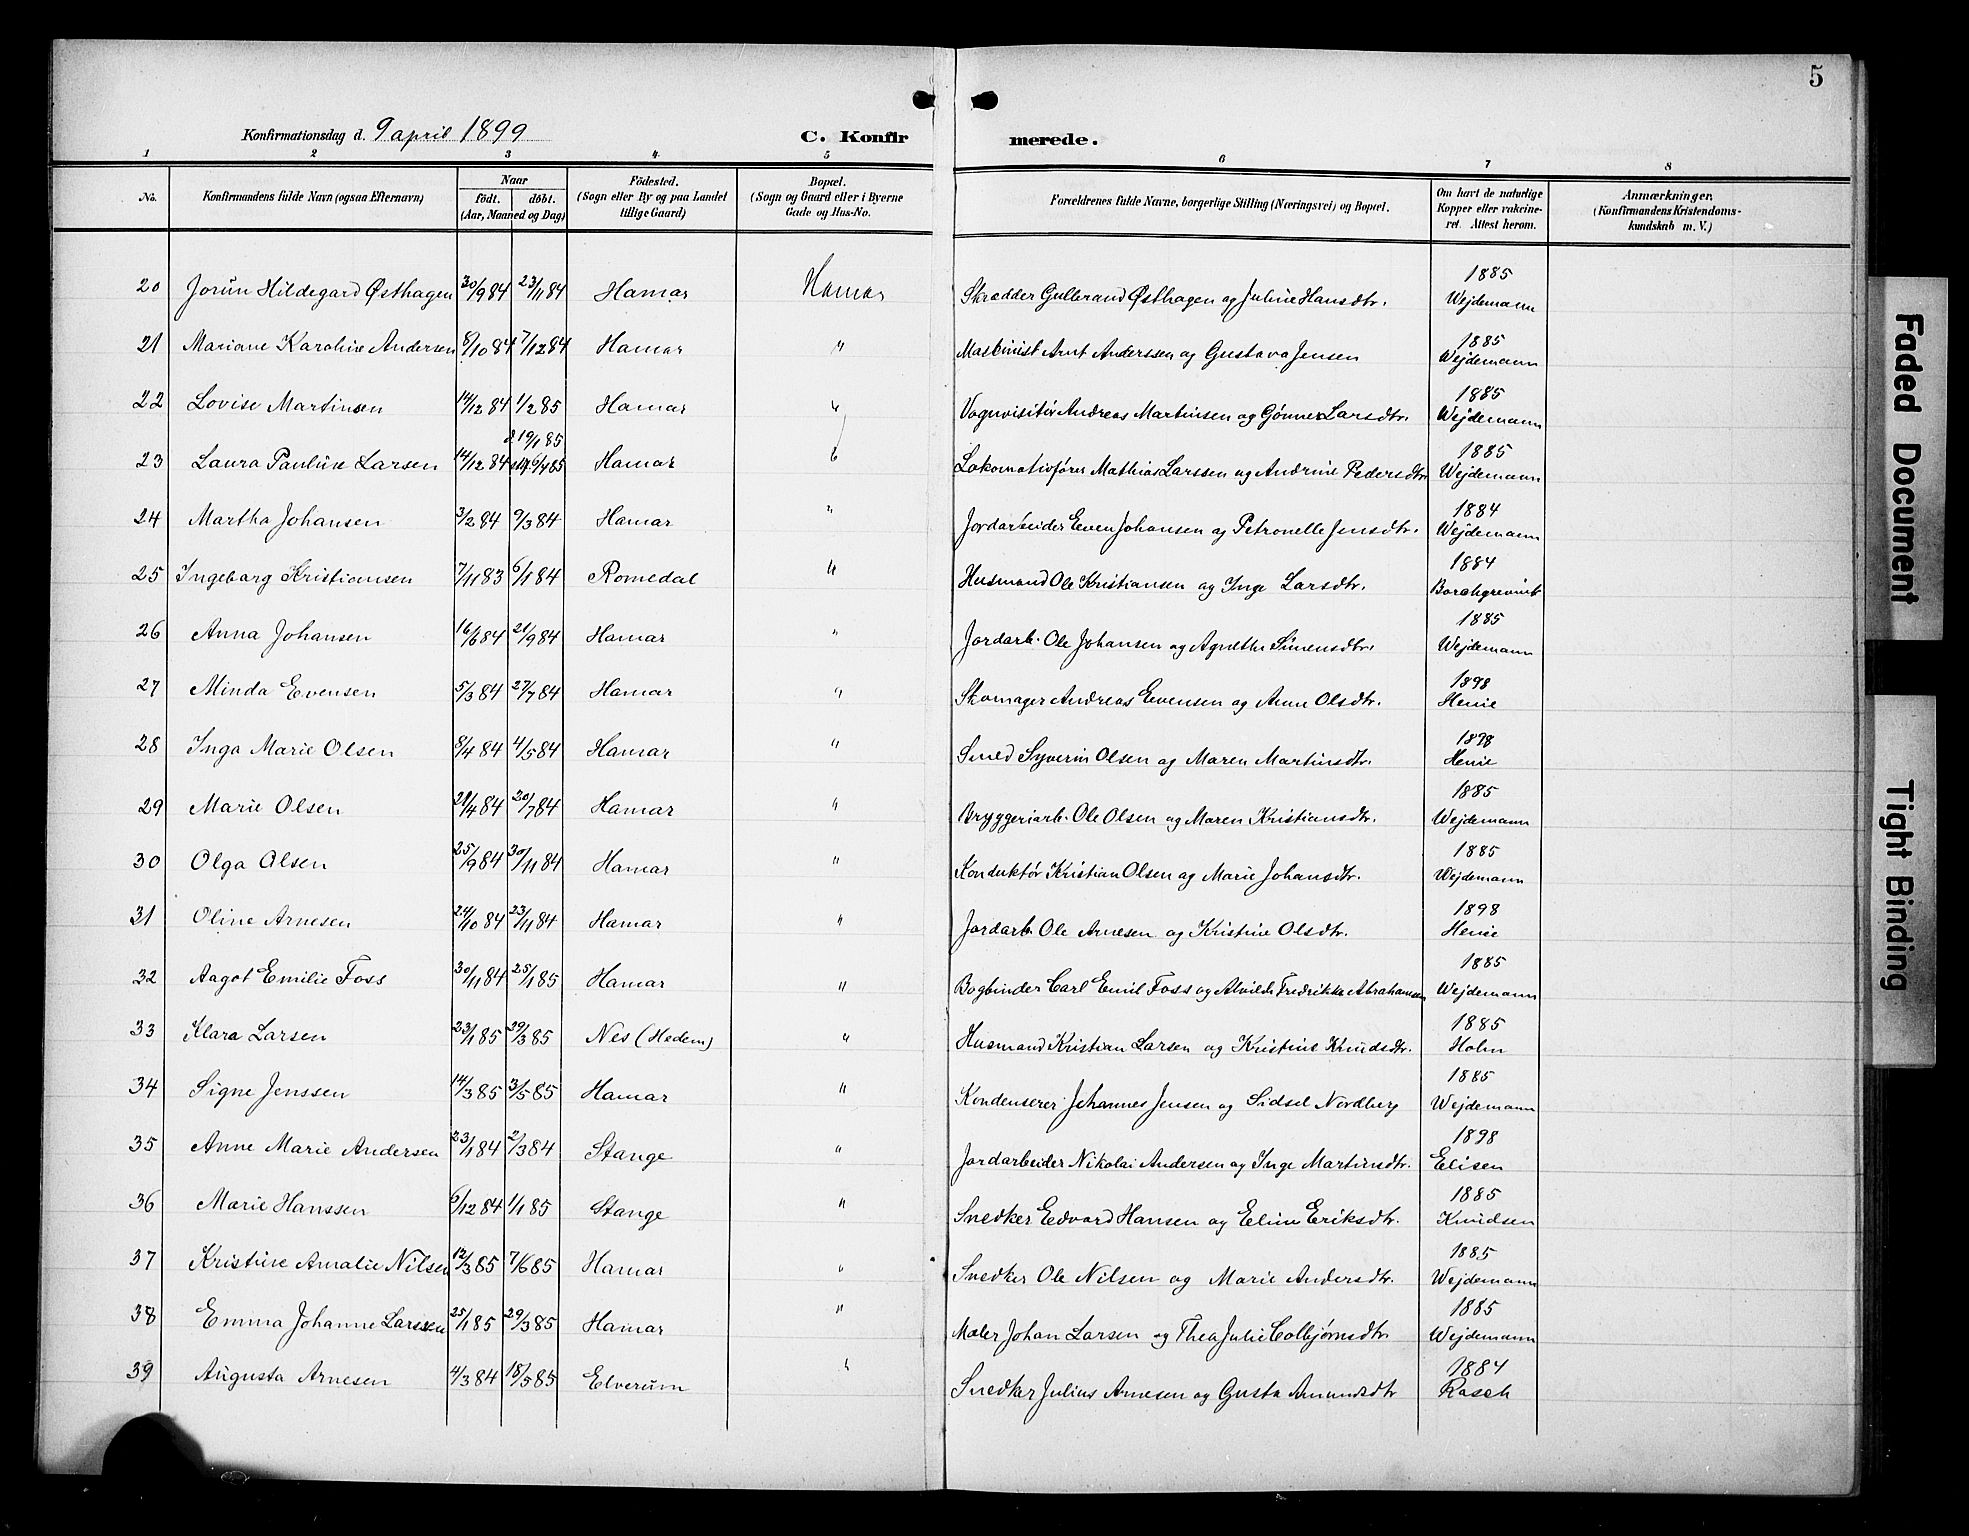 5
Konfirmationsdag d. 9 april 1899 C. Konfirmerede.
1 2 3 4. 5 6 7 8
No. Konfirmandens fulde Navn (ogsaa Efternavn) Naar født. døbt. (Aar, Maaned og Dag) Födested. (Sogn eller By og paa Landet tillige Gaard) Bopæl. (Sogn og Gaard eller i Byerne Gade og Hus-No. Forældrenes fulde Navne, borgerlige Stilling (Næringsvei) og Bopæl. Om havt de naturlige Kopper eller vakcineret. Attest herom. Anmærkninger. (Konfirmandens Kristendomskundskab m. V.)
20 Jorun Hildegard Østhagen 30/9 84 23/11 84 Hamar Hamar Skrædder Gulbrand Østhagen og Juline Hansdtr. 1885 Wejdemann
21 Mariane Karoline Andersen 8/10 84 7/12 84 Hamar " Maskinist Arnt Anderssen og Gustava Jensen 1885 Wejdemann
22 Lovise Martinsen 14/12 84 1/2 85 Hamar " Vognvisitør Andreas Martinsen og Gønner Larsdtr. 1885 Wejdemann
23 Laura Pauline Larsen 14/12 84 d. 19/1 85 6/4 85 Hamar " Lokomotivfører Mathias Larssen og Andrine Pedersdtr 1885 Wejdemann
24 Martha Johansen 3/2 84 9/3 84 Hamar " Jordarbeider Even Johansen og Petronelle Jensdtr. 1884 Wejdemann
25 Ingeborg Kristiansen 7/11 83 6/1 84 Romedal " Husmand Ole Kristiansen og Inge Larsdtr. 1884 Borchgrevink
26 Anna Johansen 16/6 84 21/9 84 Hamar " Jordarb. Ole Johansen og Agnethe Simensdtr. 1885 Wejdemann
27 Minda Evensen 5/3 84 27/7 84 Hamar " Skomager Andreas Evensen og Anne Olsdtr. 1898 Henie
28 Inga Marie Olsen 8/4 84 4/5 84 Hamar " Smed Syverin Olsen og Maren Martinsdtr. 1898 Henie
29 Marie Olsen 21/4 84 20/7 84 Hamar " Bryggeriarb. Ole Olsen og Maren Kristiansdtr. 1885 Wejdemann
30 Olga Olsen 25/9 84 30/11 84 Hamar " Konduktør Kristian Olsen og Marie Johansdtr. 1885 Wejdemann
31 Oline Arnesen 24/10 84 23/11 84 Hamar " Jordarb. Ole Arnesen og Kristine Olsdtr. 1898 Henie
32 Aagot Emilie Foss 30/11 84 25/1 85 Hamar " Bogbinder Carl Emil Foss og Alvilde Fredrikke Abrahamsen 1885 Wejdemann
33 Klara Larsen 23/1 85 29/3 85 Nes (Hedem) " Husmand Kristian Larsen og Kristine Knudsdtr. 1885 Holm
34 Signe Jenssen 14/3 85 3/5 85 Hamar " Kondenserer Johannes Jensen og Sidsel Nordberg 1885 Wejdemann
35 Anne Marie Andersen 23/1 84 2/3 84 Stange " Jordarbeider Nikolai Andersen og Inge Martinsdtr. 1898 Elisen
36 Marie Hanssen 6/12 84 1/1 85 Stange " Snedker Edvard Hansen og Eline Eriksdtr. 1885 Knudsen
37 Kristine Amalie Nilsen 12/3 85 7/6 85 Hamar " Snedker Ole Nilsen og Marie Andersdtr. 1885 Wejdemann
38 Emma Johanne Larssen 25/1 85 29/3 85 Hamar " Maler Johan Larsen og Thea Julie Colbjørnsdtr 1885 Wejdemann
39 Augusta Arnesen 4/3 84 18/5 85 Elverum " Snedker Julius Arnesen og Gusta Amundsdtr 1884 Rasch
Faded Document
Tight Binding